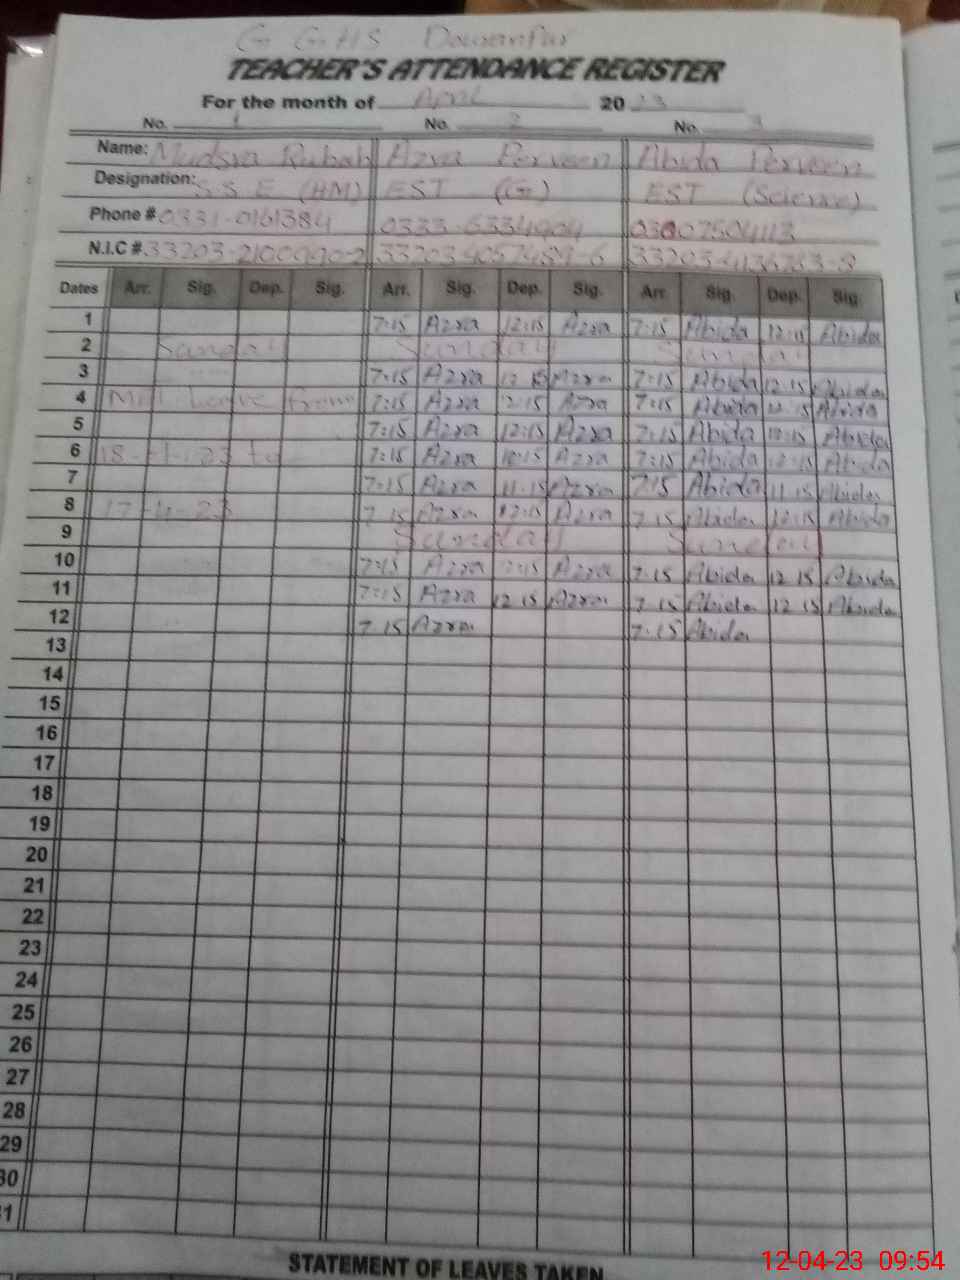 G GHS Dawanpur
TEACHER'S ATTENDANCE REGISTER
For the month of April 20 23
No. 1 No. 2 No. 3
Name: Rubab Azra Perveen Abida Perveen
Designation: S.S.E (HM) EST (G) EST (Science)
Phone # 0331-0161384 0333-6334904 03007504113
N.I.C #
Dates Arr. Sig. Dep. Sig. Arr. Sig. Dep. Sig. Arr. Sig. Dep. Sig
1 7:15 Azra 12:15 Azra 7:15 Abida 12:15 Abida
2 Sunday Sunday Sunday
3 7:15 Azra 12 15 Azra 7:15 Abida 12.15 Abida
4 Leave from 7:15 Azra 12:15 Azra 7:15 Abida 12.15 Abida
5 7:15 Azra 12:15 Azra 7:15 Abida Abida
6 to 7:15 Azra Azra 7:15 Abida 12:15 Abida
7 7:15 Azra 11.15 Azra 7:15 Abida 11.15 Abida
8 17-4-23 7.15 Azra 12:15 Azra 7.15 Abida 12:15 Abida
9 Sunday Sunday
10 7:15 Azra Azra 7.15 Abida 12 15 Abida
11 7:15 Azra 12 15 Azra 7.15 Abida 12 15 Abida
12 7.15 Azra 7.15 Abida
13
14
15
16
17
18
19
20
21
22
23
24
25
26
27
28
29
30
31
STATEMENT OF LEAVES TAKEN
12-04-23 09:54